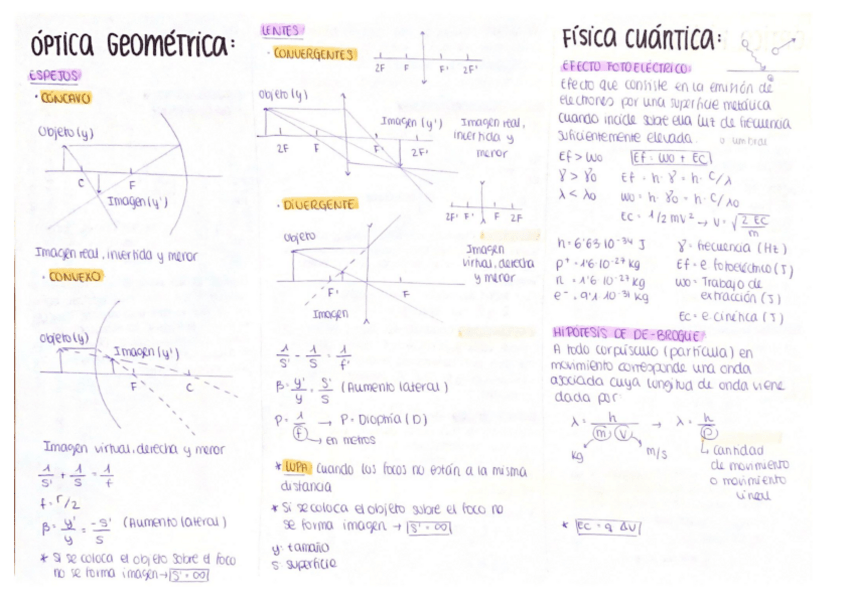 ÓPTICA GEOMÉTRICA:
ESPEJOS
· CÓNCAVO
Objeto (y)
C
F
Imagen (y')
Imagen real, invertida y menor
· CONVEXO
Objeto (y)
Imagen (y')
F
C
Imagen virtual, derecha y menor
1/s' + 1/s = 1/f
f = r/2
β = y'/y = -s'/s (Aumento lateral)
* Si se coloca el objeto sobre el foco
no se forma imagen → s' = ∞
LENTES
· CONVERGENTES
2F F F' 2F'
Objeto (y)
Imagen (y')
2F F F' 2F'
Imagen real,
invertida y
menor
· DIVERGENTE
2F' F' F 2F
Objeto
F' F
Imagen
Imagen
virtual, derecha
y menor
1/s' - 1/s = 1/f'
β = y'/y = s'/s (Aumento lateral)
P = 1/f → P = Dioptría (D)
→ en metros
* LUPA Cuando los focos no están a la misma
distancia
* Si se coloca el objeto sobre el foco no
se forma imagen → s' = ∞
y: tamaño
s: superficie
FÍSICA CUÁNTICA:
EFECTO FOTOELÉCTRICO
Efecto que consiste en la emisión de
electrones por una superficie metálica
cuando incide sobre ella luz de frecuencia
suficientemente elevada. o umbral
Ef > W0 Ef = W0 + EC
γ > γ0 Ef = h · γ = h · C/λ
λ < λ0 W0 = h · γ0 = h · C/λ0
EC = 1/2 mv² → v = √2 EC/m
h = 6'63·10⁻³⁴ J γ = frecuencia (Hz)
p⁺ = 1'6·10⁻²⁷ kg Ef = e fotoeléctrico (J)
n = 1'6·10⁻²⁷ kg W0 = Trabajo de
e⁻ = 9'1·10⁻³¹ kg extracción (J)
EC = e cinética (J)
HIPÓTESIS DE DE-BROGLIE
A todo corpúsculo (partícula) en
movimiento corresponde una onda
asociada cuya longitud de onda viene
dada por:
λ = h/m v → λ = h/p
kg m/s
cantidad
de movimiento
o movimiento
lineal
* EC = q ΔV